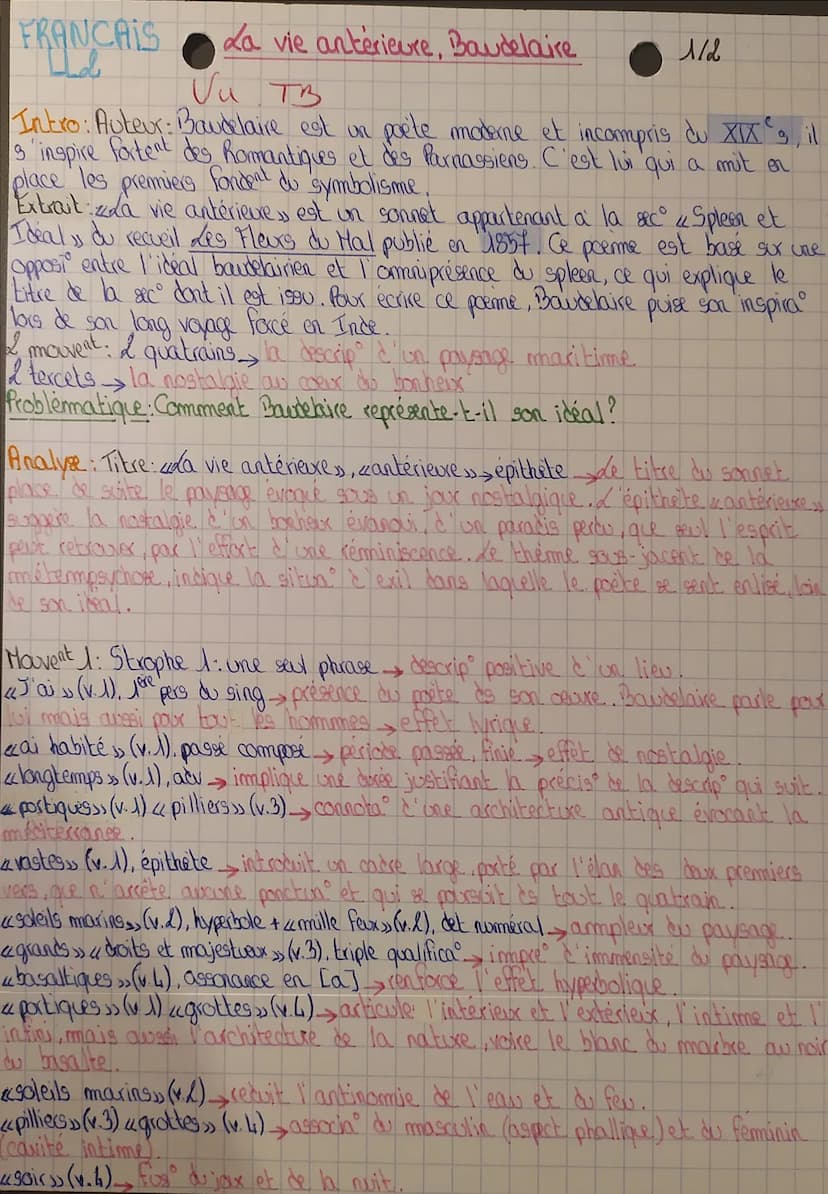 FRANCAIS
LL2
La vie antérieure, Baudelaire
1/2
Vu TB
Intro : Auteur : Baudelaire est un poète moderne et incompris du XIXe s, il
s'inspire fortent des Romantiques et des Parnassiens. C'est lui qui a mit en
place les premiers fondent du symbolisme.
Extrait : «La vie antérieure» est un sonnet appartenant à la sec° «Spleen et
Idéal» du recueil Les Fleurs du Mal publié en 1857. Ce poeme est basé sur une
opposi° entre l'idéal baudelairien et l'omniprésence du spleen, ce qui explique le
titre de la sec° dont il est issu. Pour écrire ce poeme, Baudelaire puise son inspira°
lors de son long voyage forcé en Inde.
2 mouvent : 2 quatrains → la descrip° d'un paysage maritime
2 tercets → la nostalgie au coeur du bonheur
Problèmatique : Comment Baudelaire représente-t-il son idéal?
Analyse : Titre : «La vie antérieure», «antérieure» → épithète → Le titre du sonnet
place de suite le paysage évoqué sous un jour nostalgique. L'épithète «antérieure»
suggère la nostalgie d'un bonheur évanoui, d'un paradis perdu, que seul l'esprit
peut retrouver, par l'effort d'une réminiscence. Le thème sous-jacent de la
métempsychose, indique la situa° d'exil dans laquelle le poète se sent enlisé, loin
de son idéal.
Mouvent 1 : Strophe 1 : une seul phrase → descrip° positive d'un lieu.
«J'ai» (v.1), 1ère pers du sing → présence du poète ds son oeuvre. Baudelaire parle pour
lui mais aussi pour tout les hommes → effet lyrique.
«ai habité» (v.1), passé composé → période passée, finie → effet de nostalgie.
«longtemps» (v.1), adv → implique une durée justifiant la précis° de la descrip° qui suit.
«portiques» (v.1) «pilliers» (v.3) → connota° d'une architecture antique évocant la
méditerranée.
«vastes» (v.1), épithète → introduit un cadre large, porté par l'élan des deux premiers
vers, que n'arrête aucune ponctua° et qui se poursuit ds tout le quatrain.
«soleils marins» (v.2), hyperbole + «mille feux» (v.2), det numéral → ampleur du paysage.
«grands» «droits et majestueux» (v.3), triple qualifica° → impre° d'immensité du paysage.
«basaltiques» (v.4), assonance en [a] → renforce l'effet hyperbolique.
«portiques» (v.1) «grottes» (v.4) → articule l'intérieur et l'extérieur, l'intime et l'
infini, mais aussi l'architecture de la nature, voire le blanc du marbre au noir
du basalte.
«soleils marins» (v.2) → réduit l'antinomie de l'eau et du feu.
«pilliers» (v.3) «grottes» (v.4) → associa° du masculin (aspect phallique) et du féminin
(cavité intime).
«soir» (v.4) → fus° du jour et de la nuit.